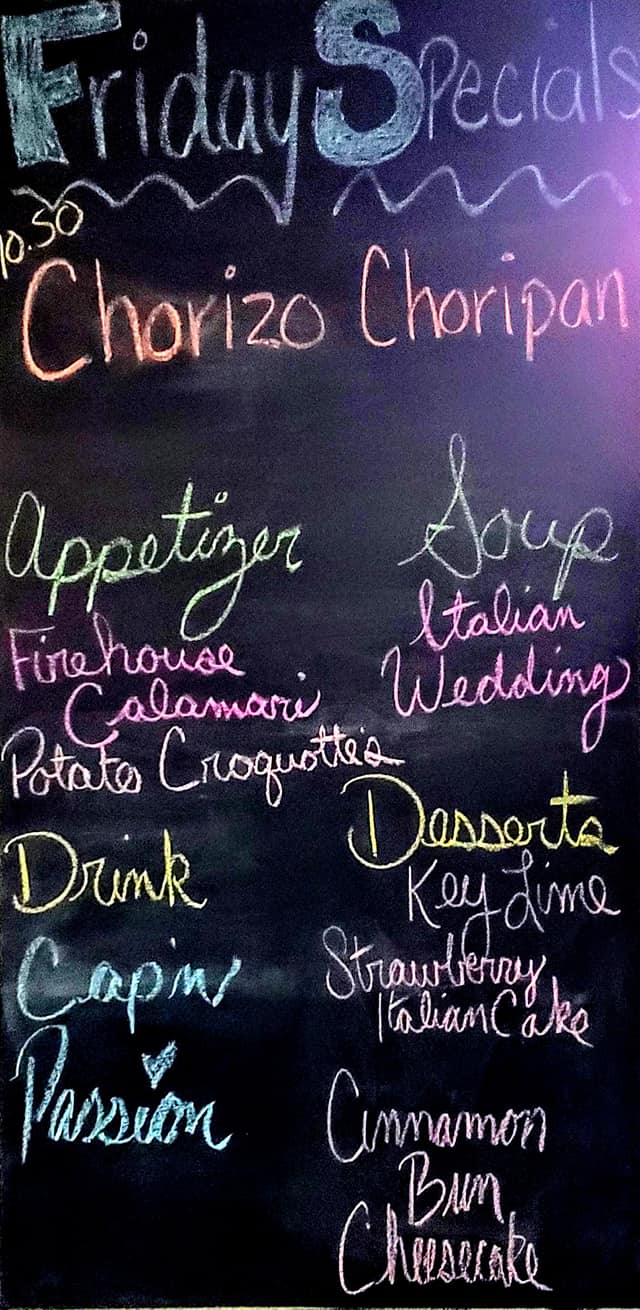 Friday Specials
10.50
Chorizo Choripan
Appetizer
Firehouse
Calamari
Potato Croquotte's
Drink
Cap'n
Passion
Soup
Italian
Wedding
Desserts
Key Lime
Strawberry
Italian Cake
Cinnamon
Bun
Cheesecake